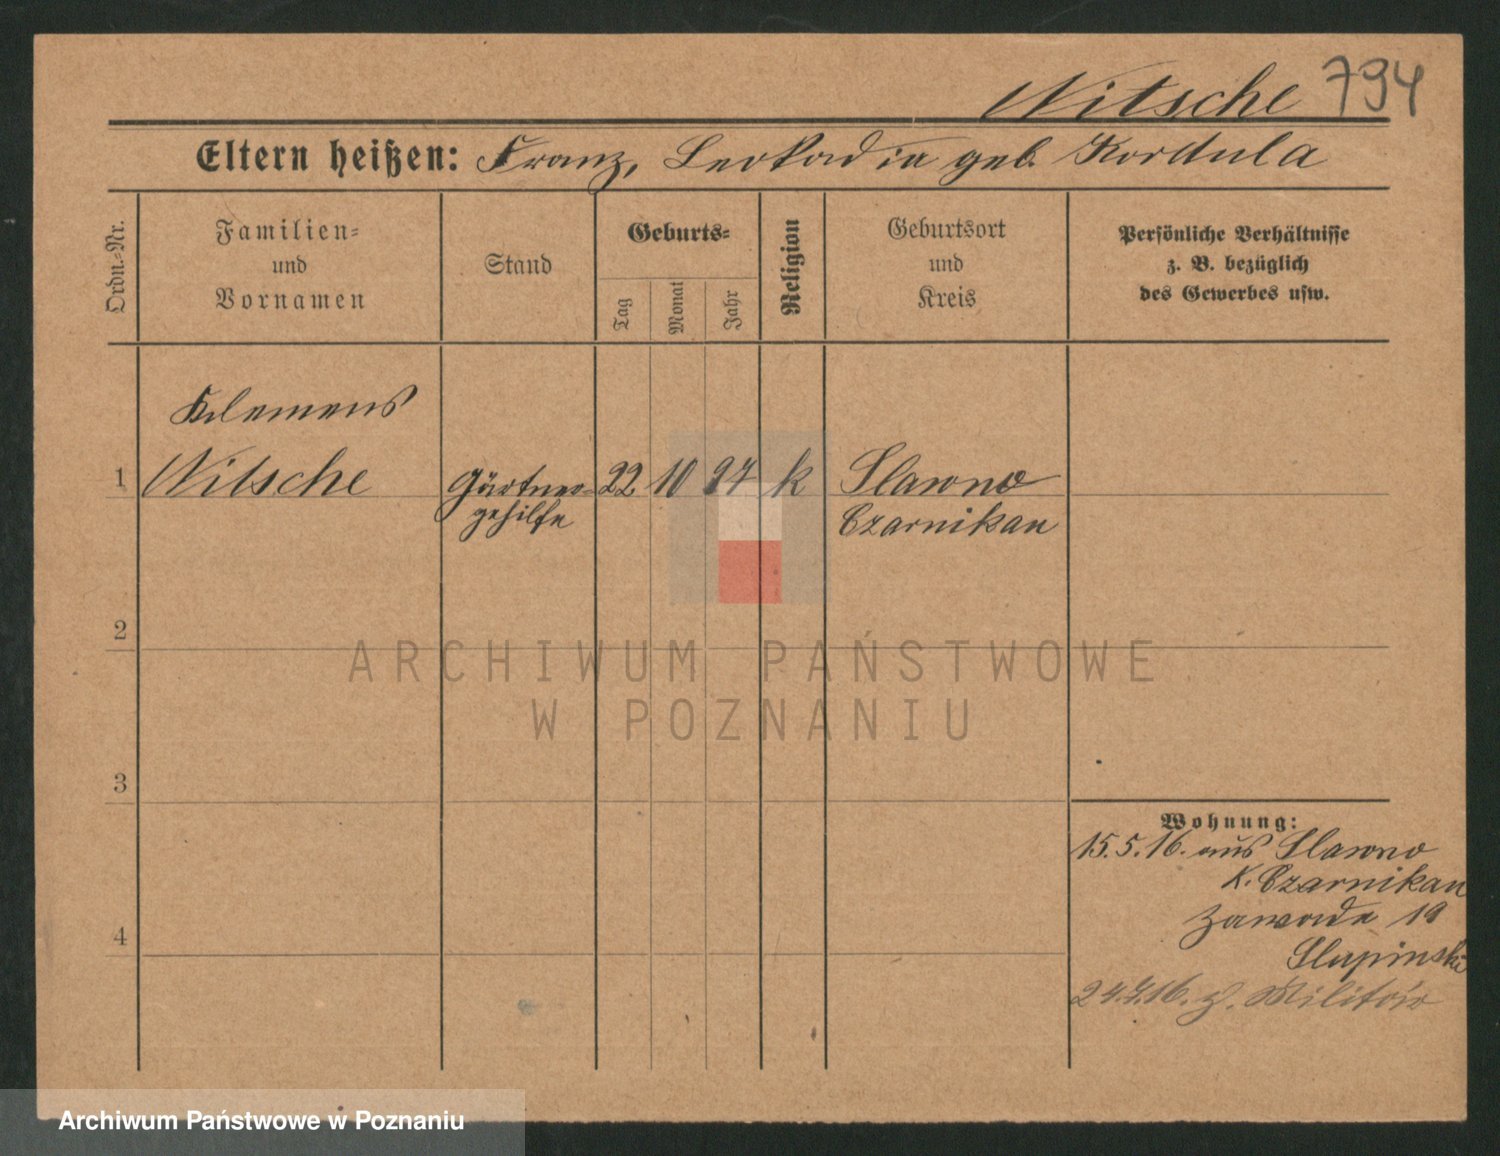 Nitsche 794
Eltern heißen: Franz, Leokadia geb. Kordula
Ordn.-Nr.
Familien-
und
Vornamen
Stand
Geburts-
Tag
Monat
Jahr
Religion
Geburtsort
und
Kreis
Persönliche Verhältnisse
z. B. bezüglich
des Gewerbes usw.
Klemens
1 Nitsche Gärtner- 22 10 97 k Slawno
gehilfe Czarnikau
2
ARCHIWUM PAŃSTWOWE
W POZNANIU
3
Wohnung:
15.5.16. aus Slawno
K. Czarnikau
4 Zawade 19
Slupinski
24.7.16. z. Militär
Archiwum Państwowe w Poznaniu